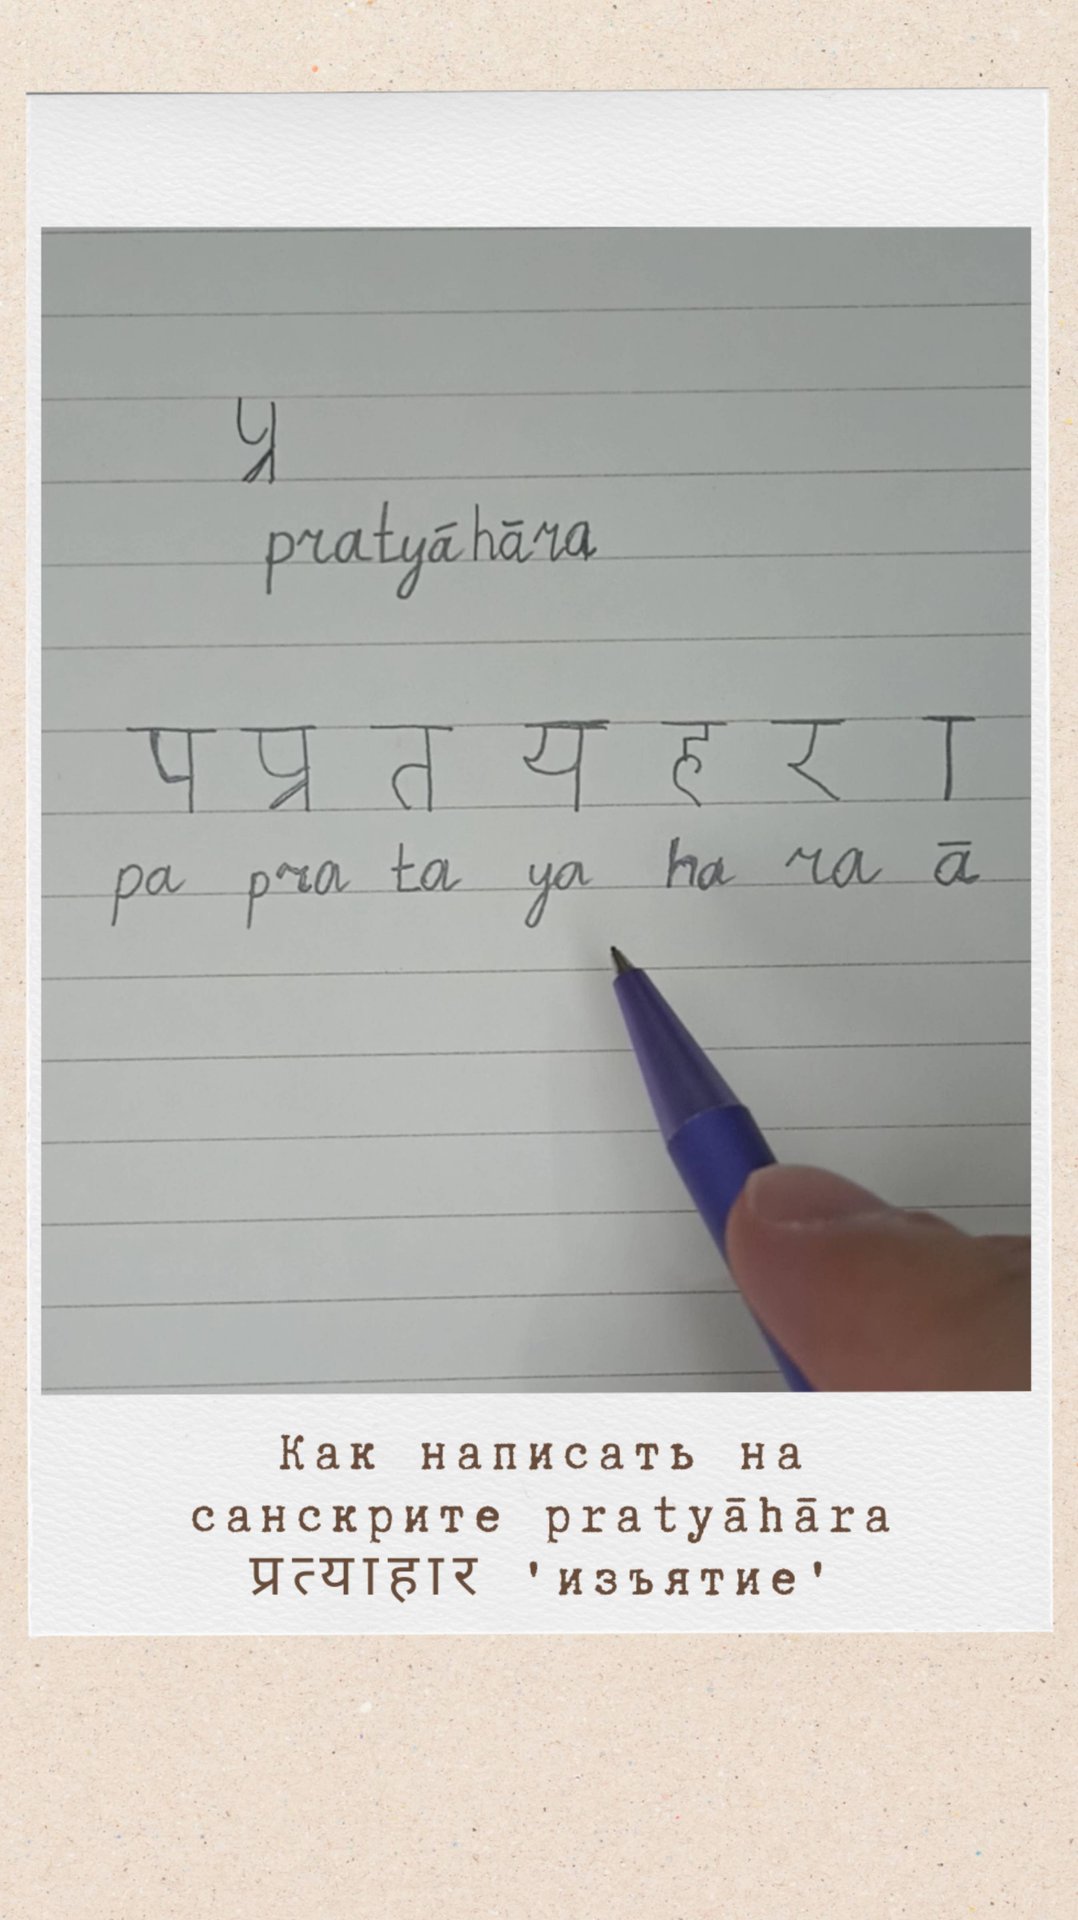 प्र
pratyāhāra
प प्र त य ह र ा
pa pra ta ya ha ra ā
Как написать на
санскрите pratyāhāra
प्रत्याहार 'изъятие'